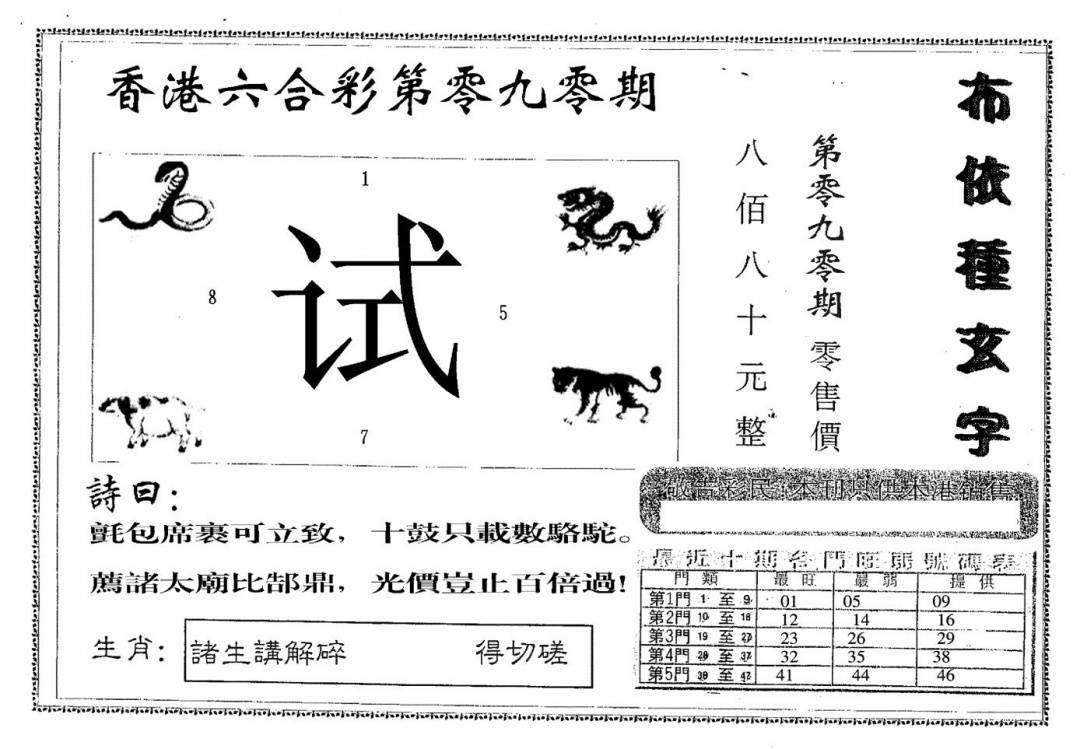 香港六合彩第零九零期
布依種玄字
第零九零期零售價
八佰八十元整
1
试
8
5
7
詩曰：
氈包席裹可立致，十鼓只載數駱駝。
薦諸太廟比郜鼎，光價豈止百倍過！
生肖：諸生講解碎 得切磋
敬告彩民:本刊只供本港銷售
最近十期各門旺弱號碼表
門類 最旺 最弱 提供
第1門 1 至 9 01 05 09
第2門 10 至 18 12 14 16
第3門 19 至 27 23 26 29
第4門 28 至 37 32 35 38
第5門 38 至 47 41 44 46